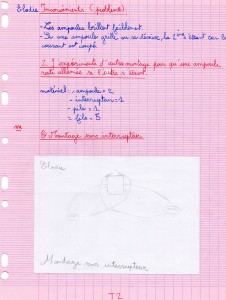 Elodie Inconvénients (problèmes)
- Les ampoules brillent faiblement.
- Si une ampoule grille ou se dévisse, la 2ème s'éteint car le
courant est coupé.
2. J'expérimente d'autres montages pour qu'une ampoule
reste allumée si l'autre s'éteint.
matériel : - ampoule = 2
- interrupteur = 1
- pile = 1
- fils = 5
Montage sans interrupteur
Elodie
Montage sans interrupteur
T2